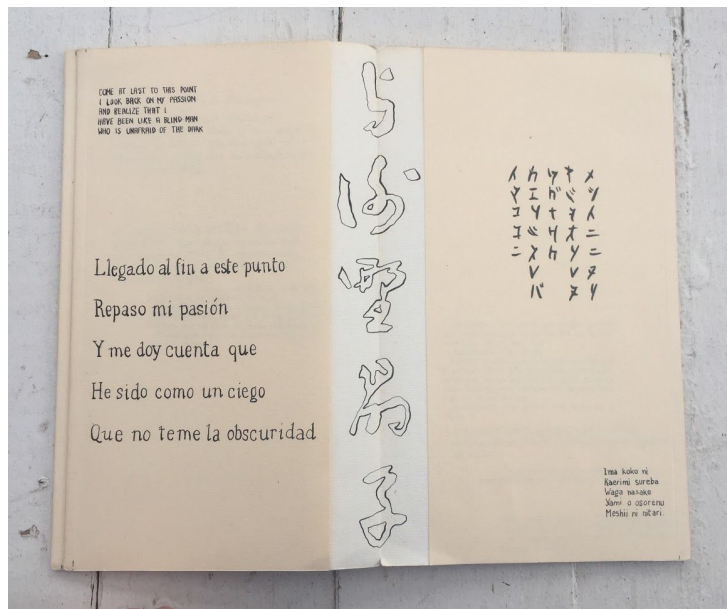 COME AT LAST TO THIS POINT
I LOOK BACK ON MY PASSION
AND REALIZE THAT I
HAVE BEEN LIKE A BLIND MAN
WHO IS UNAFRAID OF THE DARK
Llegado al fin a este punto
Repaso mi pasión
Y me doy cuenta que
He sido como un ciego
Que no teme la obscuridad
イマココニ
カエリミスレバ
ワガナサケ
ヤミヲオソレヌ
メシイニニタリ
Ima koko ni
Kaerimi sureba
Waga nasake
Yami o osorenu
Meshii ni nitari.